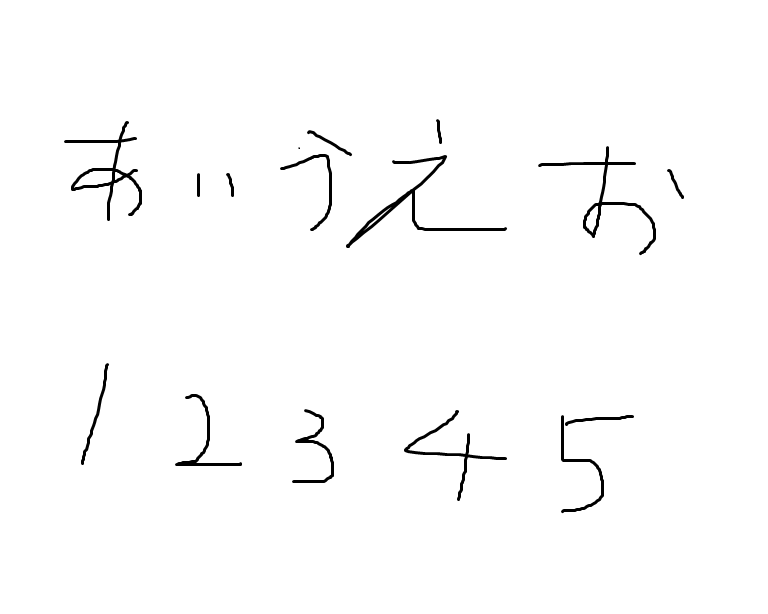 あいうえお
1 2 3 4 5